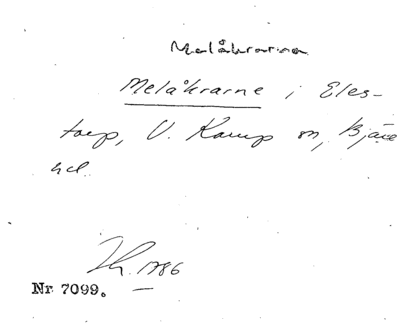 Melåkrarna
Melåkrarne i Eles-
torp, V. Karup sn, Bjäre
hd.
1786
Nr 7099.